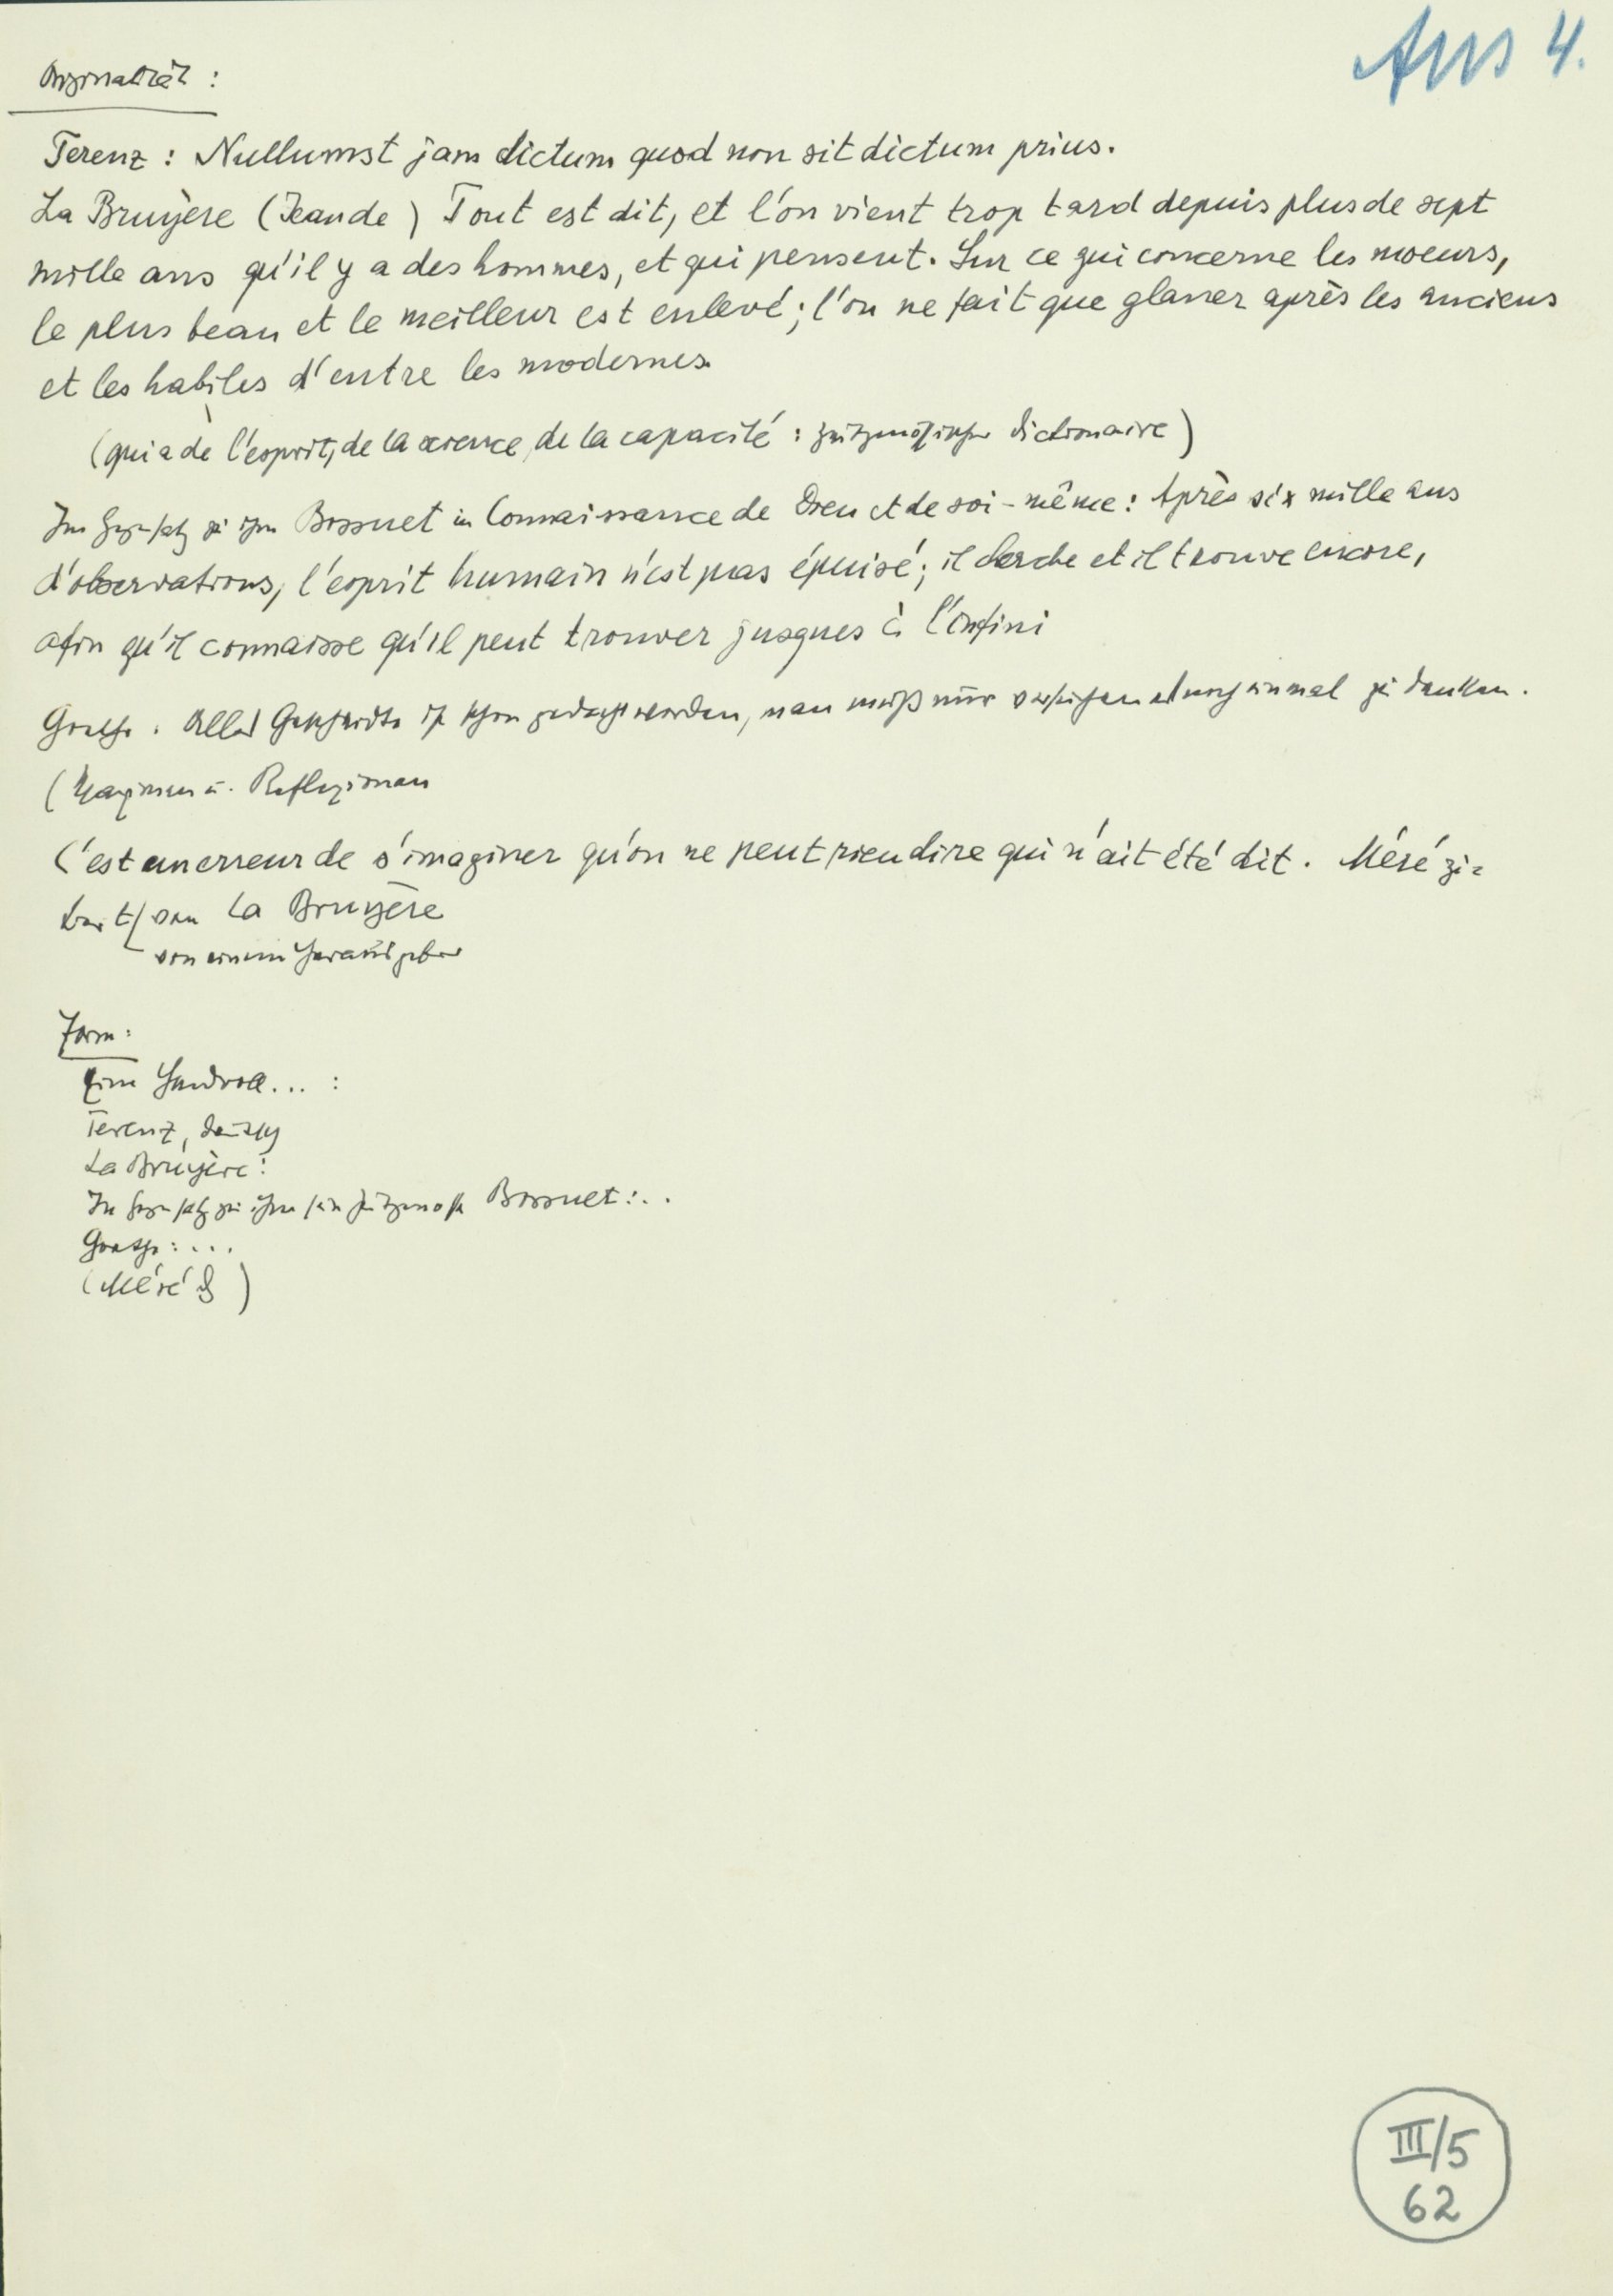 Ans 4.
Originalität :
Terenz : Nullumst jam dictum quod non sit dictum prius.
La Bruyère (Jean de ) Tout est dit, et l'on vient trop tard depuis plus de sept
mille ans qu'il y a des hommes, et qui pensent. Sur ce qui concerne les moeurs,
le plus beau et le meilleur est enlevé ; l'on ne fait que glaner après les anciens
et les habiles d'entre les modernes.
(qui a de l'esprit, de la science, de la capacité : zeitgenössischer Dictionaire)
Im Gegensatz zu ihm Bossuet in Connaissance de Dieu et de soi-même : Après six mille ans
d'observations, l'esprit humain n'est pas épuisé ; il cherche et il trouve encore,
afin qu'il connaisse qu'il peut trouver jusques à l'infini
Goethe : Alles Gescheidte ist schon gedacht worden, man muß nur versuchen es noch einmal zu denken.
(Maximen u. Reflexionen
C'est un erreur de s'imaginer qu'on ne peut rien dire qui n'ait été dit. Méré zi=
tiert von La Bruyère
von einem Herausgeber
Form :
Eine Handvoll ... :
Terenz, deutsch
La Bruyère :
Im Gegensatz zu ihm sein Zeitgenosse Bossuet : . .
Goethe : ...
(Méré )
III/5
62